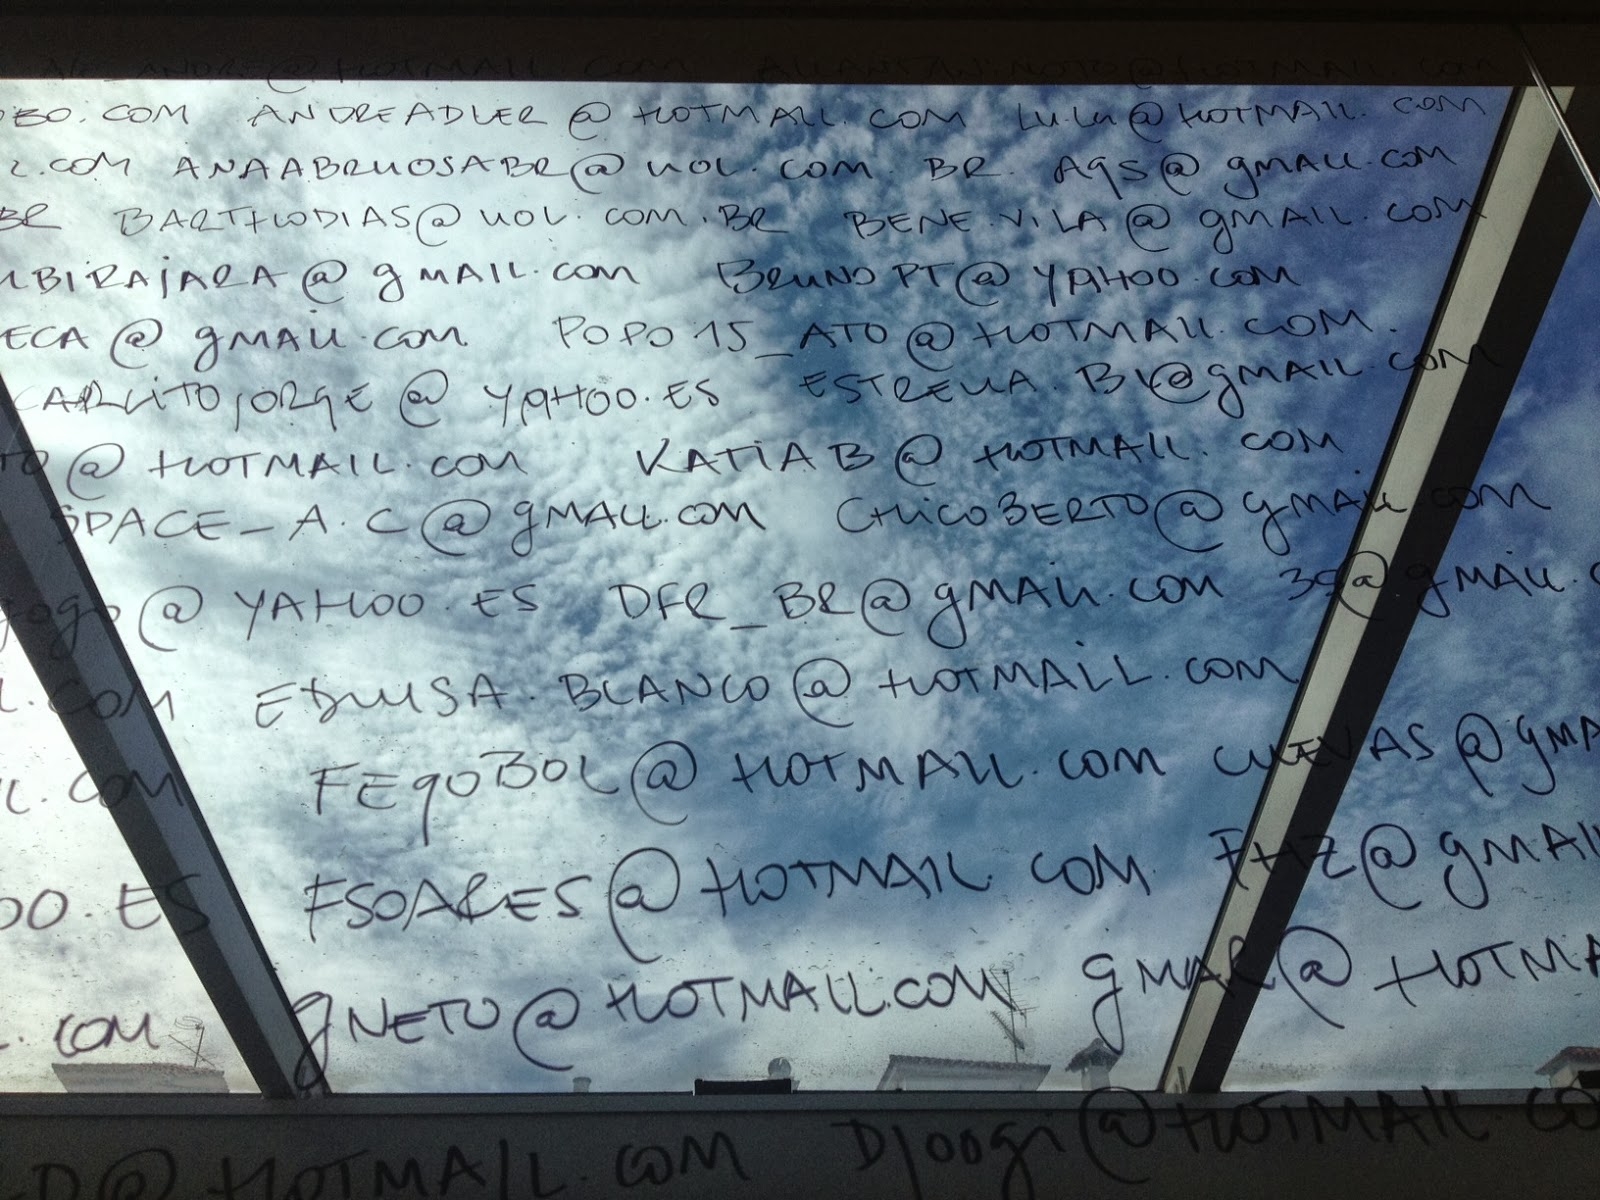 ANDRE@HOTMAIL.COM
OBO.COM ANDREADLER@HOTMAIL.COM LU.LU@HOTMAIL.COM
L.COM ANAABRUOSABR@UOL.COM.BR. AGS@gMAIL.COM
BR BARTHODIAS@UOL.COM.BR BENE.VILA@gMAIL.COM
UBIRAJARA@gMAIL.COM BRUNOPT@YAHOO.COM
ECA@gMAIL.COM POPO15_ATO@HOTMAIL.COM.
CARLITOJORGE@YAHOO.ES ESTRELLA.BL@gMAIL.COM
TO@HOTMAIL.COM KATIAB@HOTMAIL.COM
SPACE_A.C@gMAIL.COM CHICOBERTO@gMAIL.COM
gogo@YAHOO.ES DFR_BR@gMAIL.COM 3G@gMAIL.C
L.COM EDUUSA.BLANCO@HOTMAIL.COM
L.COM FEgOBOL@HOTMAIL.COM CUEVAS@gMA
OO.ES FSOARES@HOTMAIL.COM FHZ@gMAIL
L.COM gNETO@HOTMAIL.COM gMAR@HOTMA
D@HOTMAIL.COM Djoogi@HOTMAIL.CO